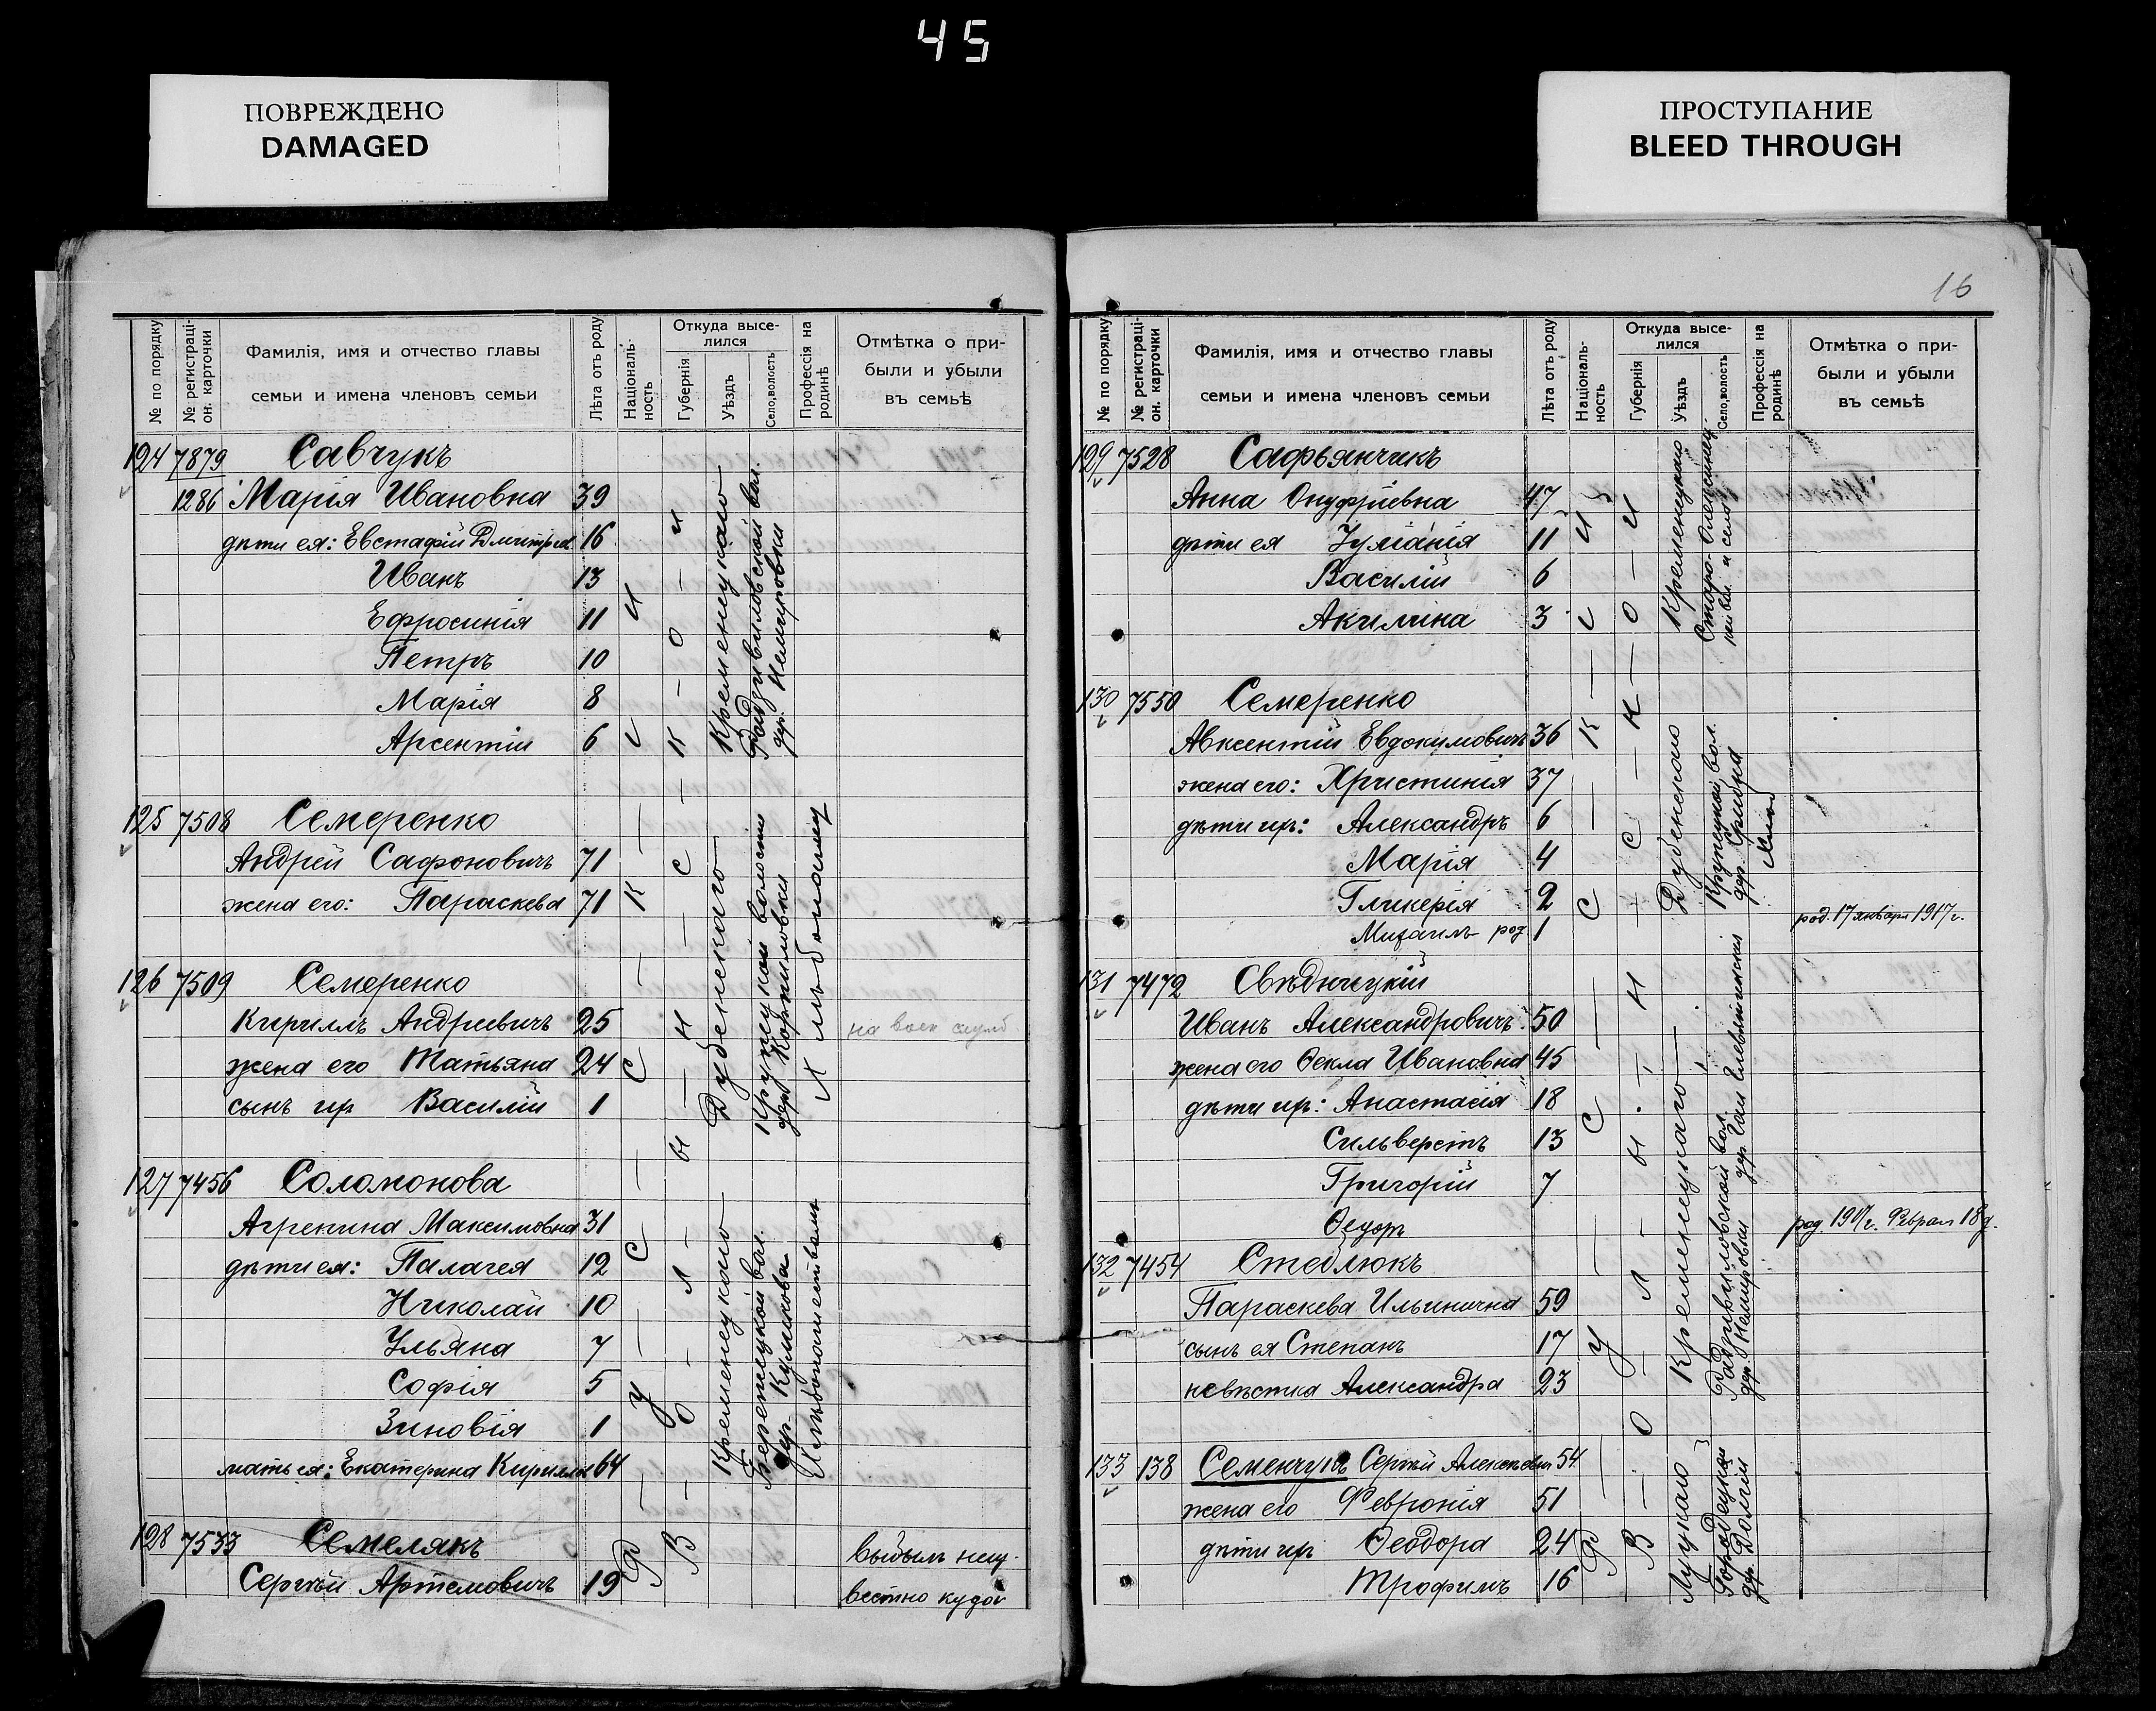 45
ПОВРЕЖДЕНО
DAMAGED
ПРОСТУПАНИЕ
BLEED THROUGH
№ по порядку
№ регистраціон. карточки
Фамилія, имя и отчество главы
семьи и имена членовъ семьи
Лѣта отъ роду
Національность
Откуда выселился
Губернія
Уѣздъ
Село, волость
Профессія на родинѣ
Отмѣтка о при-
были и убыли
въ семьѣ
124 7879 Савчукъ
1286 Марія Ивановна 39
дѣти ея: Евстафій Дмитріев 16
Иванъ 13
Ефросинія 11
Петръ 10
Марія 8
Арсентій 6
Кременецкаго
Радзивиловской вол.
дер. Немировки
125 7508 Семеренко
Андрей Сафоновичъ 71
жена его: Параскева 71
126 7509 Семеренко
Кириллъ Андреевичъ 25 на воен службѣ
жена его Татьяна 24
сынъ их Василій 1
Дубенскаго
Крупецкой волости
дер. Корниловки
Хлѣбопашец
127 7456 Соломонова
Агрепина Максимовна 31
дѣти ея: Палагея 12
Николай 10
Ульяна 7
Софія 5
Зиновія 1
мать ея: Екатерина Кирилов 64
Кременецкаго
Бережецкой вол.
дер. Куликова
128 7533 Семелякъ
Сергѣй Артемовичъ 19
выбылъ неиз-
вестно куда
Русской
Волынской
16
№ по порядку
№ регистраціон. карточки
Фамилія, имя и отчество главы
семьи и имена членовъ семьи
Лѣта отъ роду
Національность
Откуда выселился
Губернія
Уѣздъ
Село, волость
Профессія на родинѣ
Отмѣтка о при-
были и убыли
въ семьѣ
129 7528 Сафьянчикъ
Анна Онуфріевна 47
дѣти ея Іуліанія 11
Василій 6
Акилина 3
Кременецкаго
130 7550 Семеренко
Авксентій Евдокимовичъ 36
жена его: Христинія 37
дѣти их: Александръ 6
Марія 4
Гликерія 2
Михаилъ род 1 род. 17 января 1917 г.
Дубенскаго
Крупецкой вол.
131 7472 Свѣднецкій
Иванъ Александровичъ 50
жена его Ѳекла Ивановна 45
дѣти их: Анастасія 18
Сильверстъ 13
Григорій 7
Ѳедоръ род 1917 г. Феврал 18 д.
132 7454 Стеблюкъ
Параскева Ильинична 59
сынъ ея Степанъ 17
невѣстка Александра 23
Кременецкаго
Радзивиловской вол.
дер. Немировки
133 138 Семенчукъ Сергѣй Алексѣевич 54
жена его Февронія 51
дѣти их Ѳеодора 24
Трофимъ 16
Луцкаго
Городецкой
дер. Долгіи